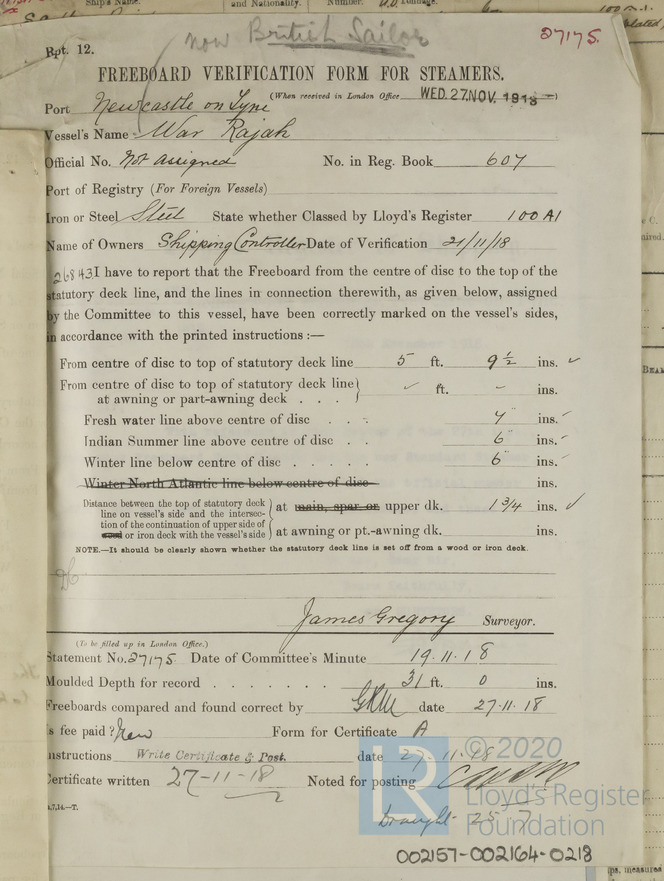 Ship's Name.
and Nationality.
Number.
Tonnage.
now British Sailor
27175.
Rpt. 12.
FREEBOARD VERIFICATION FORM FOR STEAMERS.
(When received in London Office WED. 27. NOV. 1918)
Port Newcastle on Tyne
Vessel's Name War Rajah
Official No. Not assigned No. in Reg. Book 607
Port of Registry (For Foreign Vessels)
Iron or Steel Steel State whether Classed by Lloyd's Register 100 A1
Name of Owners Shipping Controller Date of Verification 21/11/18
26843 I have to report that the Freeboard from the centre of disc to the top of the
statutory deck line, and the lines in connection therewith, as given below, assigned
by the Committee to this vessel, have been correctly marked on the vessel's sides,
in accordance with the printed instructions :—
From centre of disc to top of statutory deck line 5 ft. 9 ½ ins. ✓
From centre of disc to top of statutory deck line
at awning or part-awning deck . . . ✓ ft. – ins.
Fresh water line above centre of disc . . . 4" ins. ✓
Indian Summer line above centre of disc . . 6" ins. ✓
Winter line below centre of disc . . . . . 6" ins. ✓
Winter North Atlantic line below centre of disc ins.
Distance between the top of statutory deck
line on vessel's side and the intersec-
tion of the continuation of upper side of
wood or iron deck with the vessel's side
at main, spar or upper dk. 1 ¾ ins. ✓
at awning or pt.-awning dk. ins.
NOTE.—It should be clearly shown whether the statutory deck line is set off from a wood or iron deck.
James Gregory Surveyor.
(To be filled up in London Office.)
Statement No. 27175 Date of Committee's Minute 19.11.18
Moulded Depth for record . . . . . . . 31 ft. 0 ins.
Freeboards compared and found correct by date 27.11.18
Is fee paid? Form for Certificate A
Instructions Write Certificate & Post. date 27.11.18
Certificate written 27-11-18 Noted for posting
Draught 25 7
© 2020
LR
Lloyd's Register
Foundation
002157-002164-0218